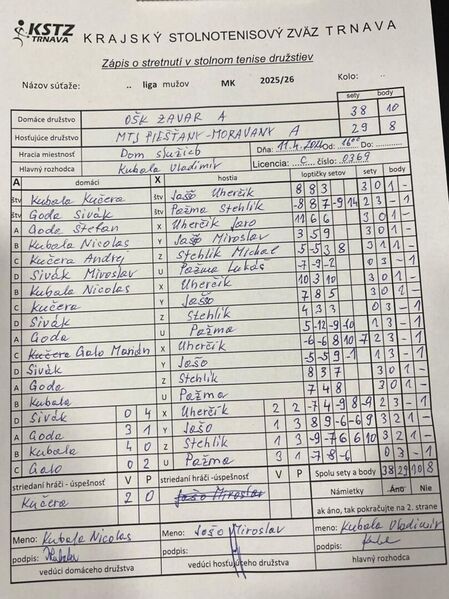 KSTZ TRNAVA KRAJSKÝ STOLNOTENISOVÝ ZVÄZ TRNAVA
Zápis o stretnutí v stolnom tenise družstiev
Názov súťaže: .. liga mužov MK 2025/26 Kolo: ..
sety body
Domáce družstvo OŠK ZAVAR A 38 10
Hosťujúce družstvo MTJ PIEŠŤANY-MORAVANY A 29 8
Hracia miestnosť Dom služieb Dňa: 11.4. od: 1600 do:
Hlavný rozhodca Kubala Vladimír Licencia: C číslo: 0369
A domáci X hostia loptičky sety sety body
štv Kubala Kučera štv Jašo Uherčík 8 8 3 3 0 1 -
štv Goda Sivák štv Pažma Stehlík -8 8 7 -9 -14 2 3 - 1
A Goda Štefan X Uherčík Jaro 11 6 6 3 0 1 -
B Kubala Nicolas Y Jašo Miroslav 3 5 9 3 0 1 -
C Kučera Andrej Z Stehlík Michal -5 -5 3 8 1 3 - 1
D Sivák Miroslav U Pažma Lukáš -7 -9 -2 0 3 - 1
B Kubala Nicolas X Uherčík 10 3 10 3 0 1 -
C Kučera Y Jašo 7 8 5 3 0 1 -
D Sivák Z Stehlík 4 3 3 3 0 1 -
A Goda U Pažma 5 -12 -9 -10 1 3 - 1
C Kučera Galo Marián X Uherčík -6 -6 8 10 -7 2 3 - 1
D Sivák Y Jašo -5 -5 9 -1 1 3 - 1
A Goda Z Stehlík 8 3 7 3 0 1 -
B Kubala U Pažma 7 4 8 3 0 1 -
D Sivák 0 4 X Uherčík 2 2 -7 4 -9 8 -9 2 3 - 1
A Goda 3 1 Y Jašo 1 3 8 9 -6 -6 9 3 2 1 -
B Kubala 4 0 Z Stehlík 1 3 -9 -7 6 6 10 3 2 1 -
C Galo 0 2 U Pažma 3 1 -7 -8 -6 0 3 - 1
striedaní hráči - úspešnosť V P striedaní hráči - úspešnosť V P Spolu sety a body 38 29 10 8
Kučera 2 0 Jašo Miroslav Námietky Áno Nie
ak áno, tak pokračujte na 2. strane
Meno: Kubala Nicolas Meno: Jašo Miroslav meno: Kubala Vladimír
podpis: podpis: podpis:
vedúci domáceho družstva vedúci hosťujúceho družstva hlavný rozhodca